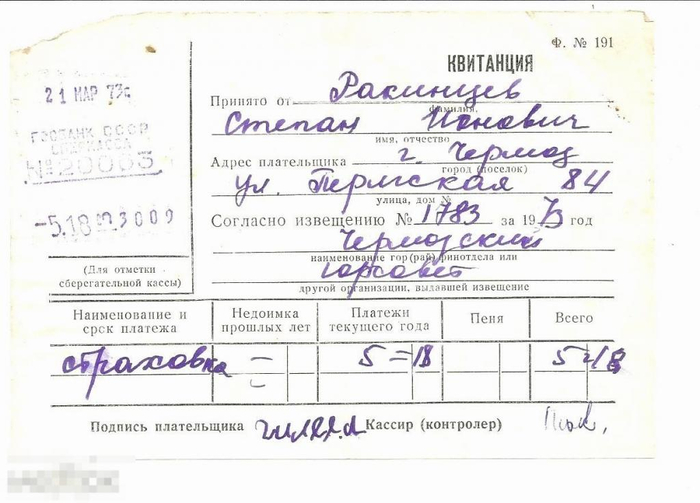 Ф. № 191
КВИТАНЦИЯ
21 МАР 73
ГОСБАНК СССР
СБЕРКАССА
№ 20003
-5.18
3009
(Для отметки
сберегательной кассы)
Принято от Ракинцев
фамилия,
Степан Ионович
имя, отчество
Адрес плательщика г. Чермоз
город (поселок)
ул. Пермская 84
улица, дом №
Согласно извещению № 1783 за 1973 год
Чермозский
наименование гор(рай)финотдела или
горсовет
другой организации, выдавшей извещение
Наименование и срок платежа Недоимка прошлых лет Платежи текущего года Пеня Всего
страховка — 5=18 5=18
Подпись плательщика Кассир (контролер)